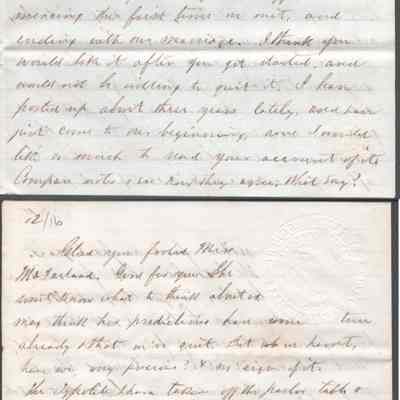 mencing the first time we met, and
ending with our marriage. I think you
would like it after you got started, and
would not be willing to quit it. I have
posted up about three years lately, and have
just come to our beginning, and I would
like so much to read your account of it to
Compare notes & see how they agree. What say?
12/16
Glad you fooled Miss
McFarland. Good for you. She
won't know what to think about it
may think her predictions have come true
already & that we've quit. But when
have we any ? & no sign of it.
The have taken off the parlor table &